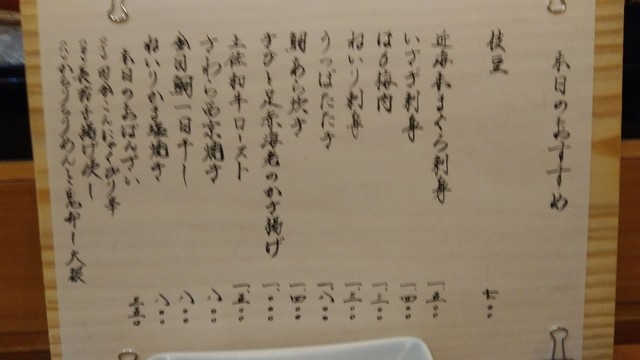 本日のおすすめ
枝豆 七〇〇
近海本まぐろ刺身 一五〇〇
いさぎ刺身 一四〇〇
はも梅肉 一三〇〇
ねいり刺身 一三〇〇
うつぼたたき 一八〇〇
鯛あら炊き 一四〇〇
きびと足赤海老のかき揚げ 一〇〇〇
土佐和牛ロースト 一五〇〇
さわら西京焼き 八〇〇
金目鯛一日干し 八〇〇
ねいりかま塩焼き 八〇〇
本日のおばんざい 三五〇
揚げ浸し
大根